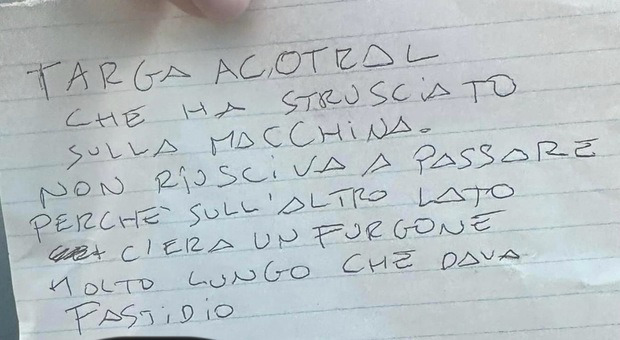 TARGA ACOTRAL
CHE HA STRUSCIATO
SULLA MACCHINA.
NON RIUSCIVA A PASSARE
PERCHÈ SULL'ALTRO LATO
C'IERA UN FURGONE
MOLTO LUNGO CHE DAVA
FASTIDIO